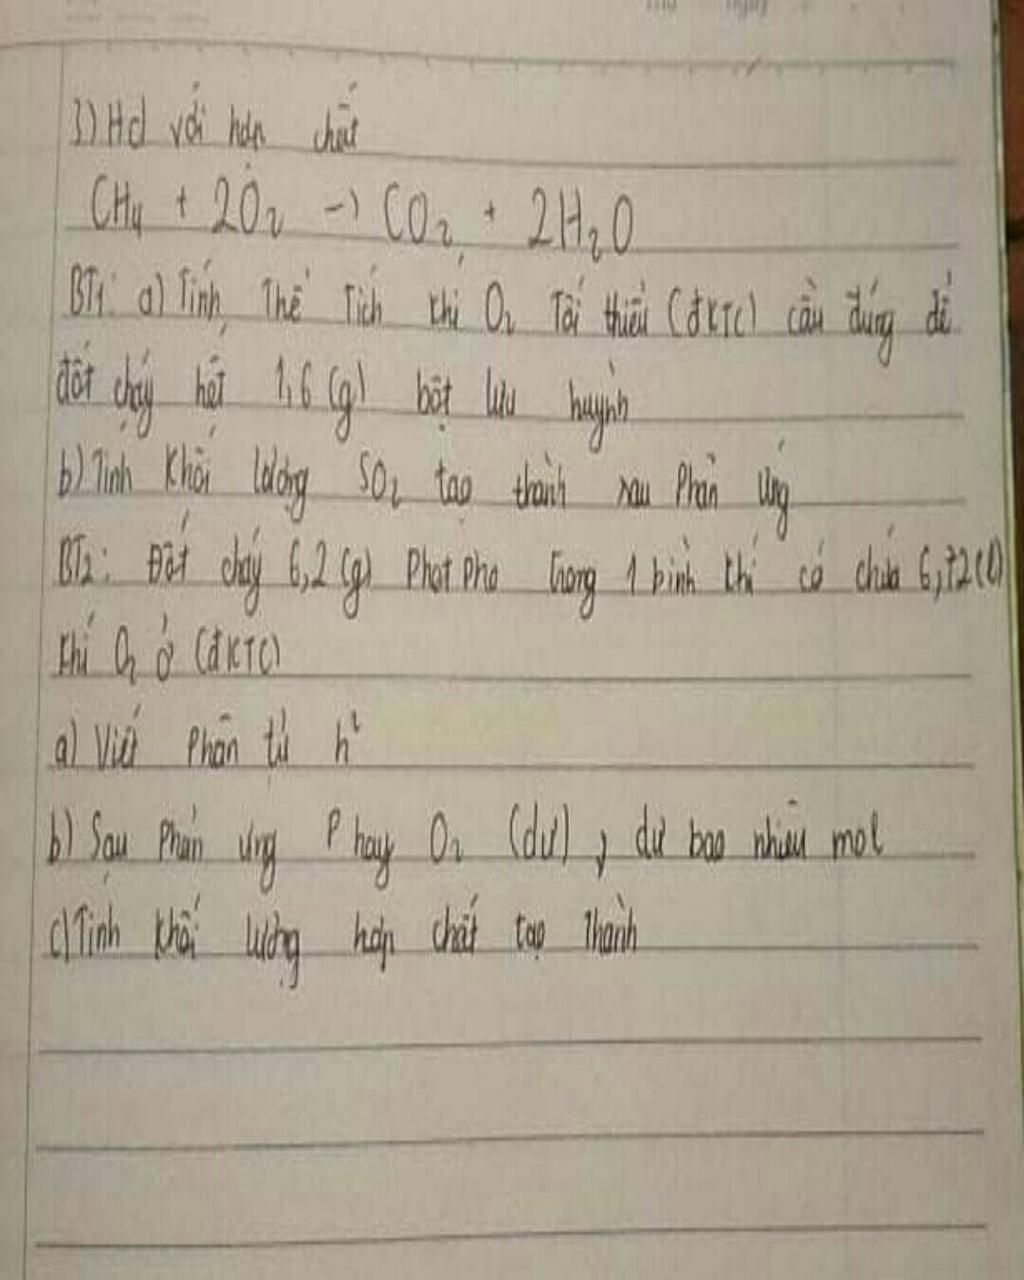 3) Hd với hợp chất
CH₄ + 2O₂ → CO₂ + 2H₂O
BT1: a) Tính Thể Tích khí O₂ Tối thiểu (đKTC) cần dùng để
đốt cháy hết 1,6 (g) bột lưu huỳnh
b) Tính khối lượng SO₂ tạo thành sau Phản ứng
BT2: Đốt cháy 6,2 (g) Phot pho trong 1 bình khí có chứa 6,72 (l)
khí O₂ ở (đKTC)
a) Viết Phân tử h²
b) Sau Phản ứng P hay O₂ (dư), dư bao nhiêu mol
c) Tính khối lượng hợp chất tạo Thành